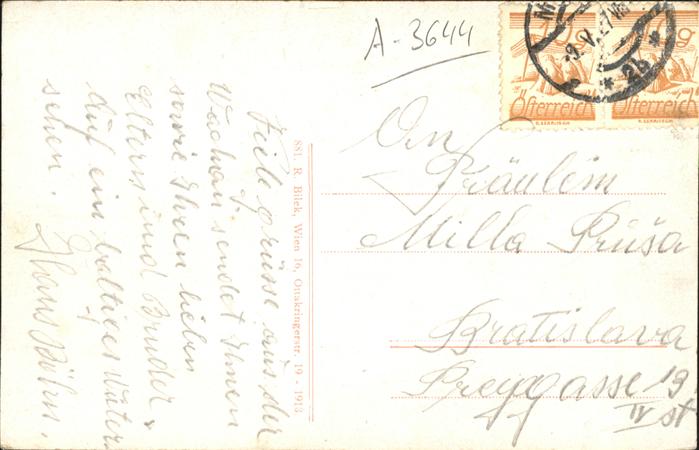 A-3644
Österreich
Österreich
Viele Grüsse aus der
Wachau sendet Ihnen
sowie Ihren lieben
Eltern und Bruder.
Auf ein baldiges Wieder
sehen.
Hans Böhm.
881. R. Bilek, Wien 16, Ottakringerstr. 19 - 1913
An
Fräulein
Milla Průša
Bratislava
19
IV st